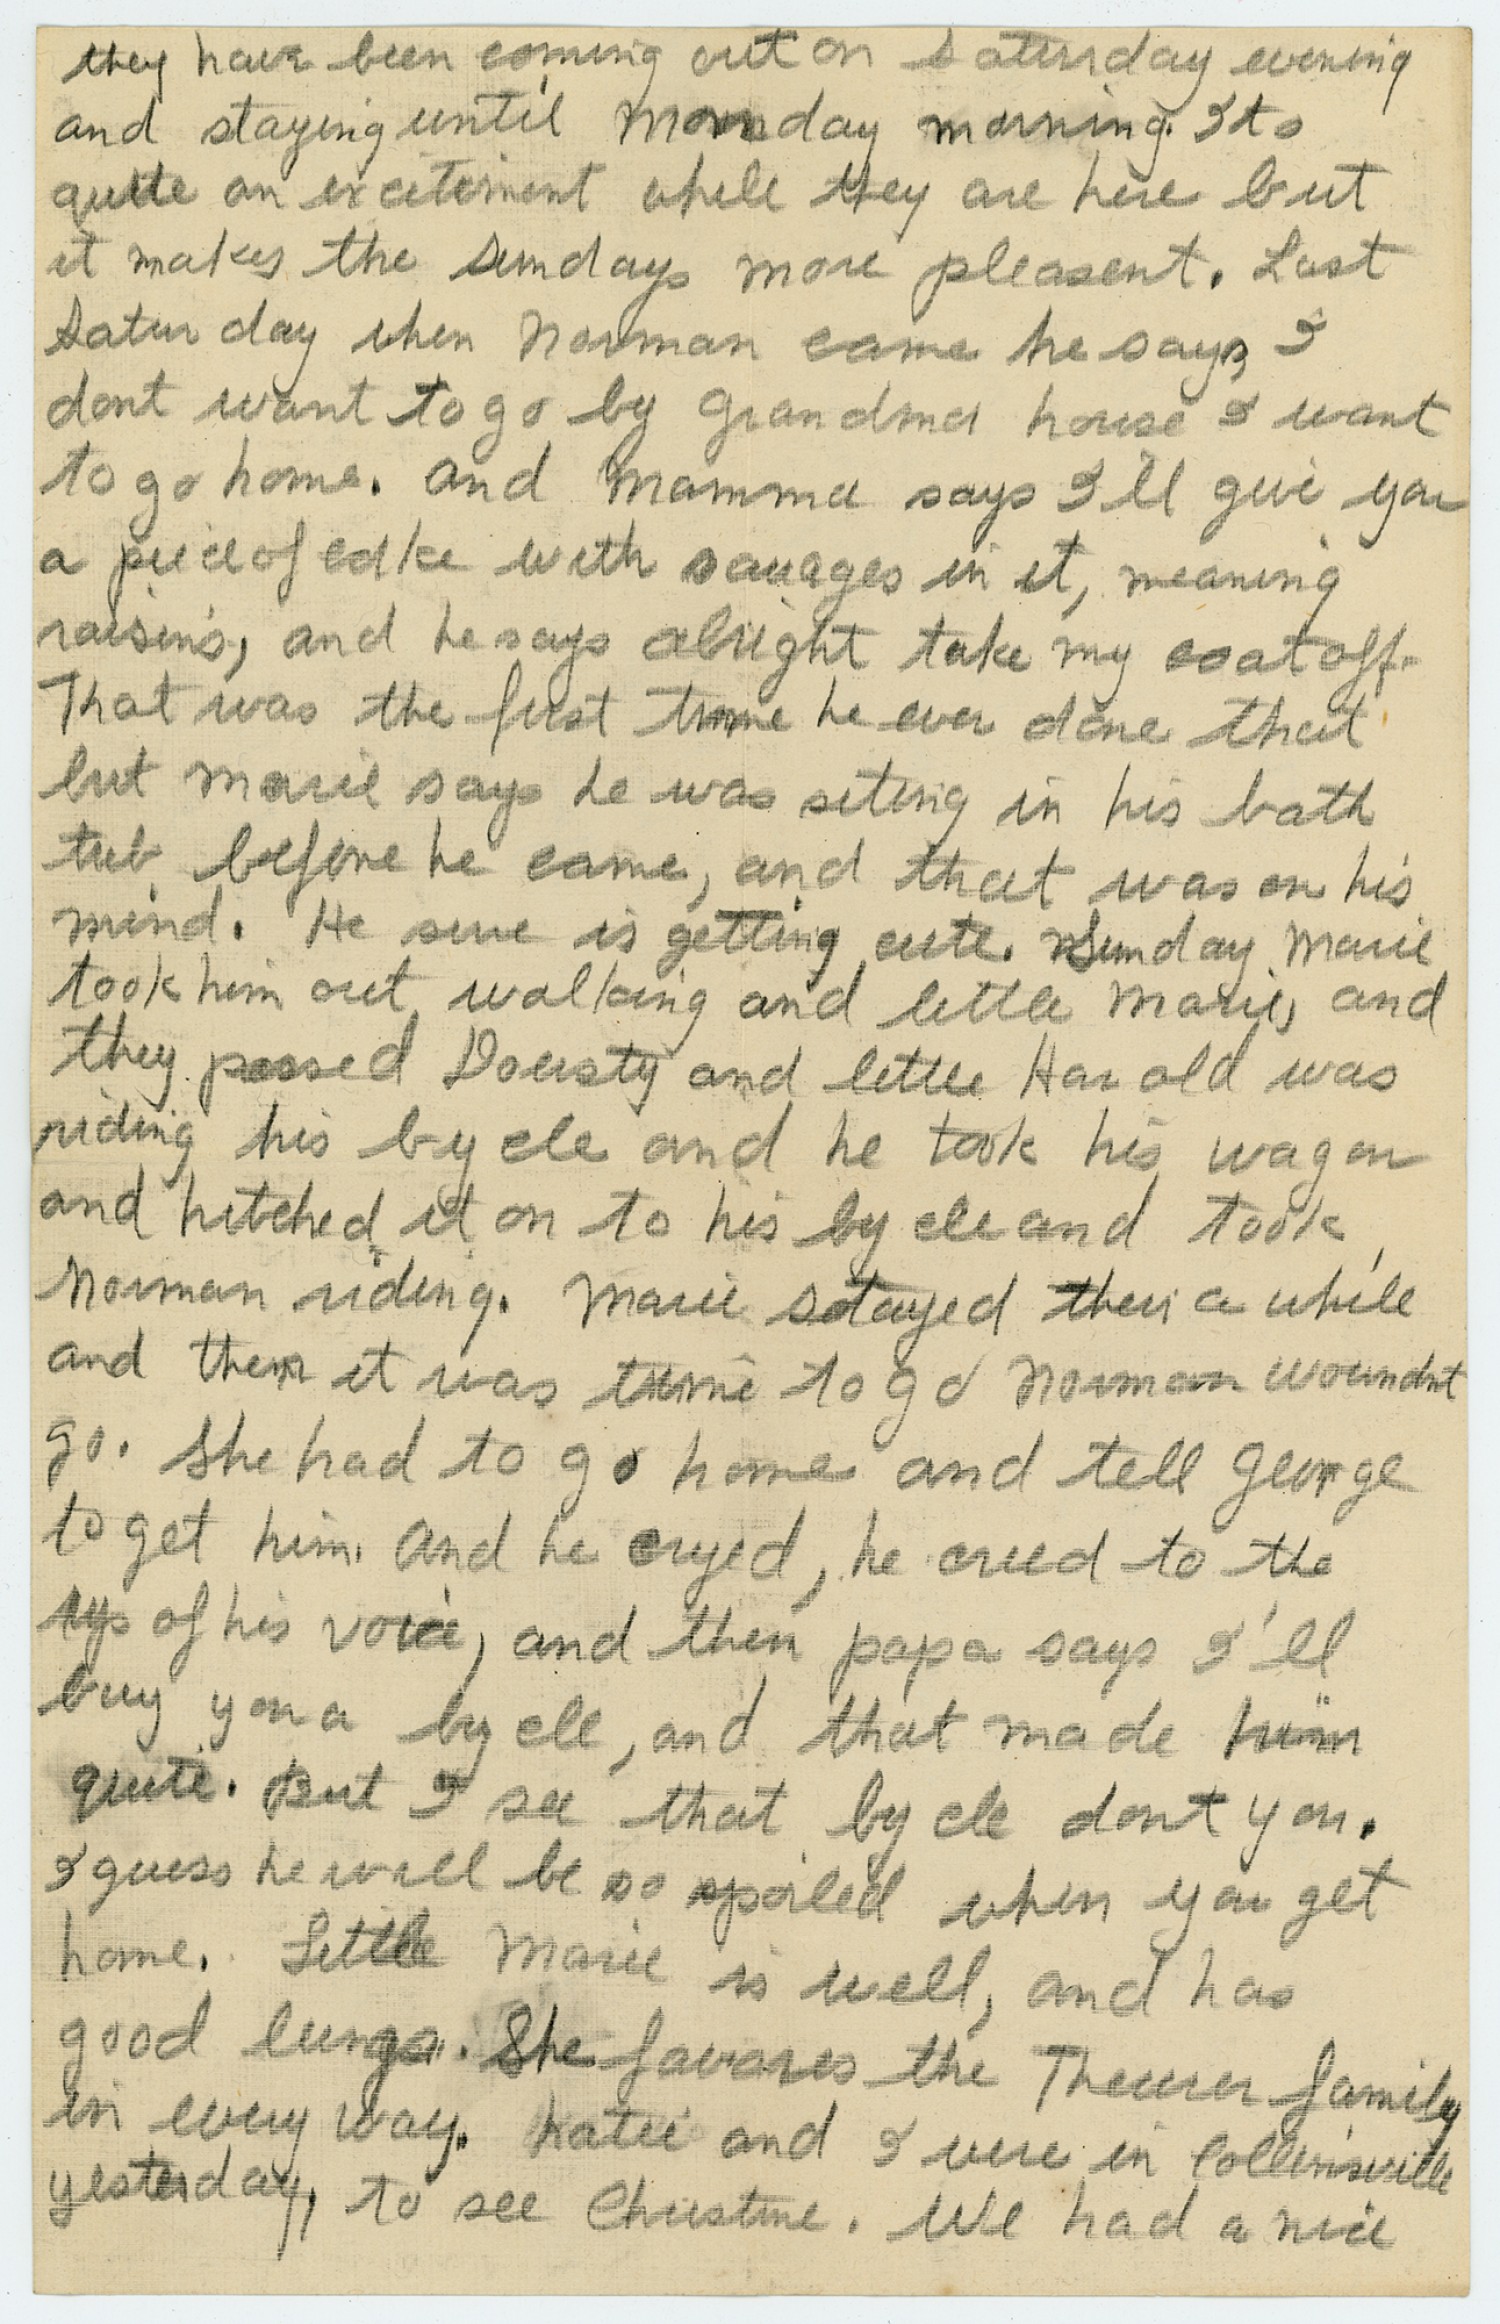 they have been coming out on Saturday evening
and staying until Monday morning. Its
quite an excitement while they are here but
it makes the Sundays more pleasent. Last
Saturday when Norman came he says I
dont want to go by Grandma house I want
to go home. And Mamma says I'll give you
a piece of cake with sauages in it, meaning
raisins, and he says alright take my coat off.
That was the first time he ever done that
but Marie says he was siting in his bath
tub before he came, and that was on his
mind. He sure is getting cute. Sunday Marie
took him out walking and little Marie, and
they passed Dousty and little Harold was
riding his bycle and he took his wagon
and hitched it on to his bycle and took
Norman riding. Marie stayed ther a while
and then it was time to go Norman woundnt
go. She had to go home and tell George
to get him. And he cryed, he cried to the
of his voice, and then papa says I'll
buy you a bycle, and that made him
quite. But I see that bycle dont you.
I guess he will be so spoiled when you get
home. Little Marie is well, and has
good lungs. She favores the Theurer family
in every way. Katie and I were in Collinsville
yesterday, to see Christine. We had a nice